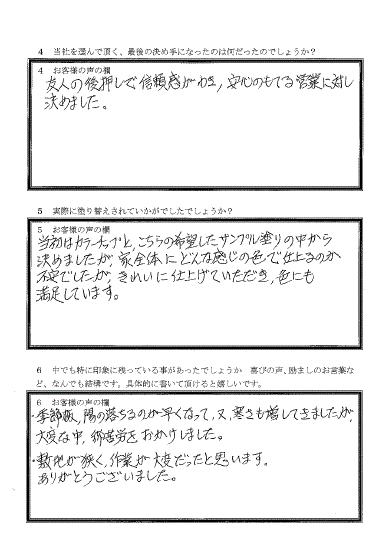 4 当社を選んで頂く、最後の決め手になったのは何だったのでしょうか?
4 お客様の声の欄
友人の後押しで信頼感がわき、安心のもてる営業に対し
決めました。
5 実際に塗り替えされていかがでしたでしょうか?
5 お客様の声の欄
当初はカラーチップと、こちらの希望したサンプル塗りの中から
決めましたが、家全体にどんな感じの色で仕上るのか
不安でしたが、きれいに仕上げていただき、色にも
満足しています。
6 中でも特に印象に残っている事があったでしょうか 喜びの声、励ましのお言葉な
ど、なんでも結構です。具体的に書いて頂けると嬉しいです。
6 お客様の声の欄
・季節柄、陽の落ちるのが早くなって、又、寒さも増してきましたが、
大変な中、御苦労をおかけしました。
・敷地が狭く、作業が大変だったと思います。
ありがとうございました。